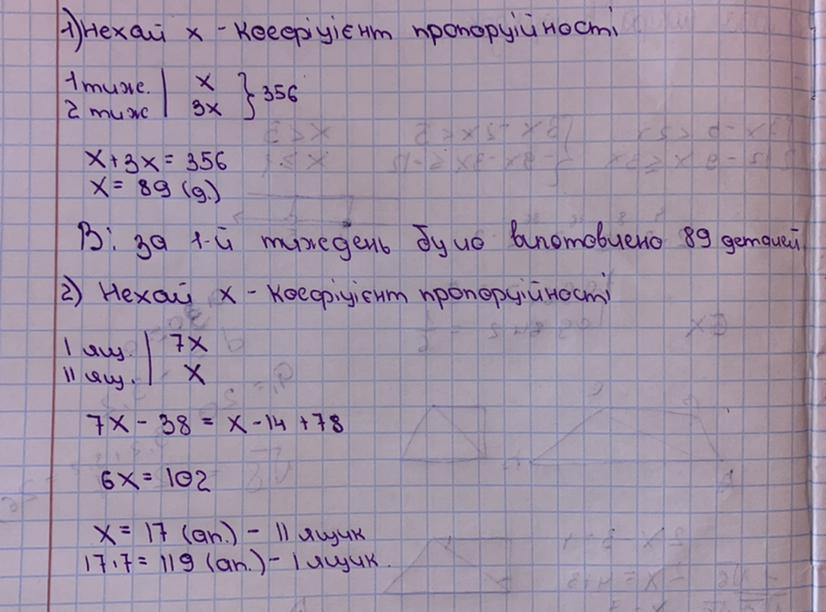 1) Нехай х - коефіцієнт пропорційності
1 тиж. | х
2 тиж | 3х } 356
х + 3х = 356
х = 89 (д.)
В: за 1-й тиждень було виготовлено 89 деталей
2) Нехай х - коефіцієнт пропорційності
I ящ. | 7х
II ящ. | х
7х - 38 = х - 14 + 78
6х = 102
х = 17 (ап.) - II ящик
17·7 = 119 (ап.) - I ящик.